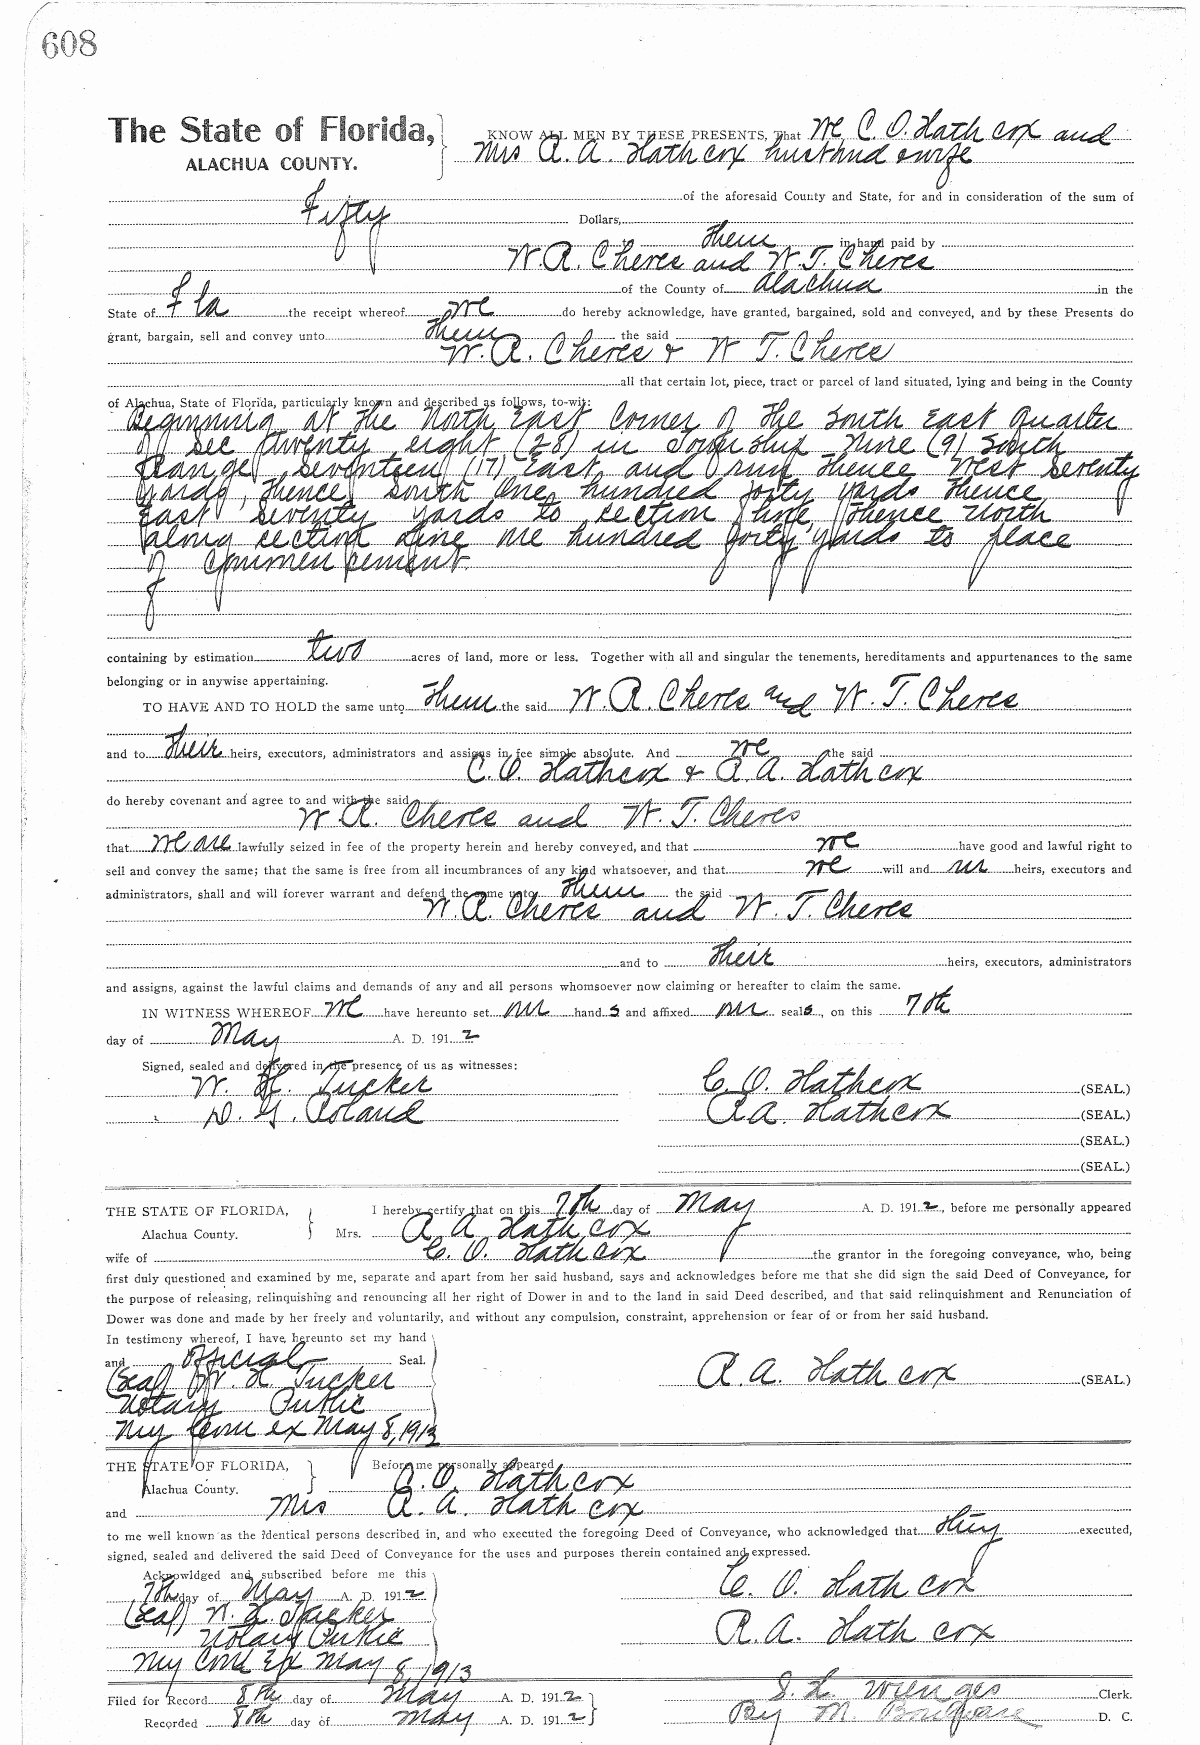 608
The State of Florida,
ALACHUA COUNTY.
KNOW ALL MEN BY THESE PRESENTS, That We C. O. Hathcox and
Mrs R. A. Hathcox husband & wife
of the aforesaid County and State, for and in consideration of the sum of
Fifty Dollars,
them in hand paid by
W. R. Cheres and W. T. Cheres
of the County of Alachua in the
State of Fla the receipt whereof we do hereby acknowledge, have granted, bargained, sold and conveyed, and by these Presents do
grant, bargain, sell and convey unto them the said
W. R. Cheres & W T. Cheres
all that certain lot, piece, tract or parcel of land situated, lying and being in the County
of Alachua, State of Florida, particularly known and described as follows, to-wit:
Beginning at the North East Corner of the South East Quarter
of Sec twenty eight (28) in Township Nine (9) South
Range Seventeen (17) East and run thence West Seventy
yards, thence South One hundred forty yards thence
East Seventy yards to section line thence North
along section line one hundred forty yards to place
of Commencement
containing by estimation two acres of land, more or less. Together with all and singular the tenements, hereditaments and appurtenances to the same
belonging or in anywise appertaining.
TO HAVE AND TO HOLD the same unto them the said W. R. Cheres and W. T. Cheres
and to their heirs, executors, administrators and assigns in fee simple absolute. And we the said
C. O. Hathcox & R. A. Hathcox
do hereby covenant and agree to and with the said
W. R. Cheres and W. T. Cheres
that we are lawfully seized in fee of the property herein and hereby conveyed, and that we have good and lawful right to
sell and convey the same; that the same is free from all incumbrances of any kind whatsoever, and that we will and our heirs, executors and
administrators, shall and will forever warrant and defend the same unto them the said
W. R. Cheres and W. T. Cheres
and to their heirs, executors, administrators
and assigns, against the lawful claims and demands of any and all persons whomsoever now claiming or hereafter to claim the same.
IN WITNESS WHEREOF We have hereunto set our hands and affixed our seals, on this 7th
day of May A. D. 1912
Signed, sealed and delivered in the presence of us as witnesses:
W. H. Tucker C. O. Hathcox (SEAL.)
D. G. Roland R A. Hathcox (SEAL.)
(SEAL.)
(SEAL.)
THE STATE OF FLORIDA,
Alachua County.
I hereby certify that on this 7th day of May A. D. 1912, before me personally appeared
Mrs. R A Hathcox
wife of C. O. Hathcox the grantor in the foregoing conveyance, who, being
first duly questioned and examined by me, separate and apart from her said husband, says and acknowledges before me that she did sign the said Deed of Conveyance, for
the purpose of releasing, relinquishing and renouncing all her right of Dower in and to the land in said Deed described, and that said relinquishment and Renunciation of
Dower was done and made by her freely and voluntarily, and without any compulsion, constraint, apprehension or fear of or from her said husband.
In testimony whereof, I have hereunto set my hand
and official Seal.
(Seal) W. H. Tucker R. A. Hathcox (SEAL.)
Notary Public
My Com ex May 8, 1913
THE STATE OF FLORIDA,
Alachua County.
Before me personally appeared
C. O. Hathcox
and Mrs R. A. Hathcox
to me well known as the identical persons described in, and who executed the foregoing Deed of Conveyance, who acknowledged that they executed,
signed, sealed and delivered the said Deed of Conveyance for the uses and purposes therein contained and expressed.
Acknowldged and subscribed before me this
7th day of May A. D. 1912 C. O. Hathcox
(Seal) W. H. Tucker
Notary Public R. A. Hathcox
My Com Ex May 8, 1913
Filed for Record 8th day of May A. D. 1912 S. H. Wienges Clerk.
Recorded 8th day of May A. D. 1912 By M. D. C.